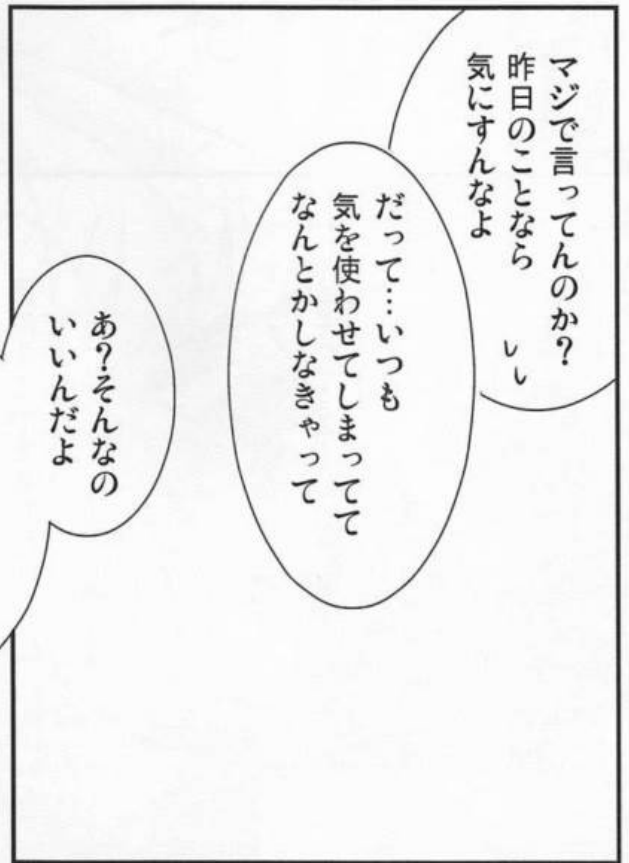 マジで言ってんのか？
昨日のことなら
気にすんなよ
だって…いつも
気を使わせてしまってて
なんとかしなきゃって
あ？そんなの
いいんだよ